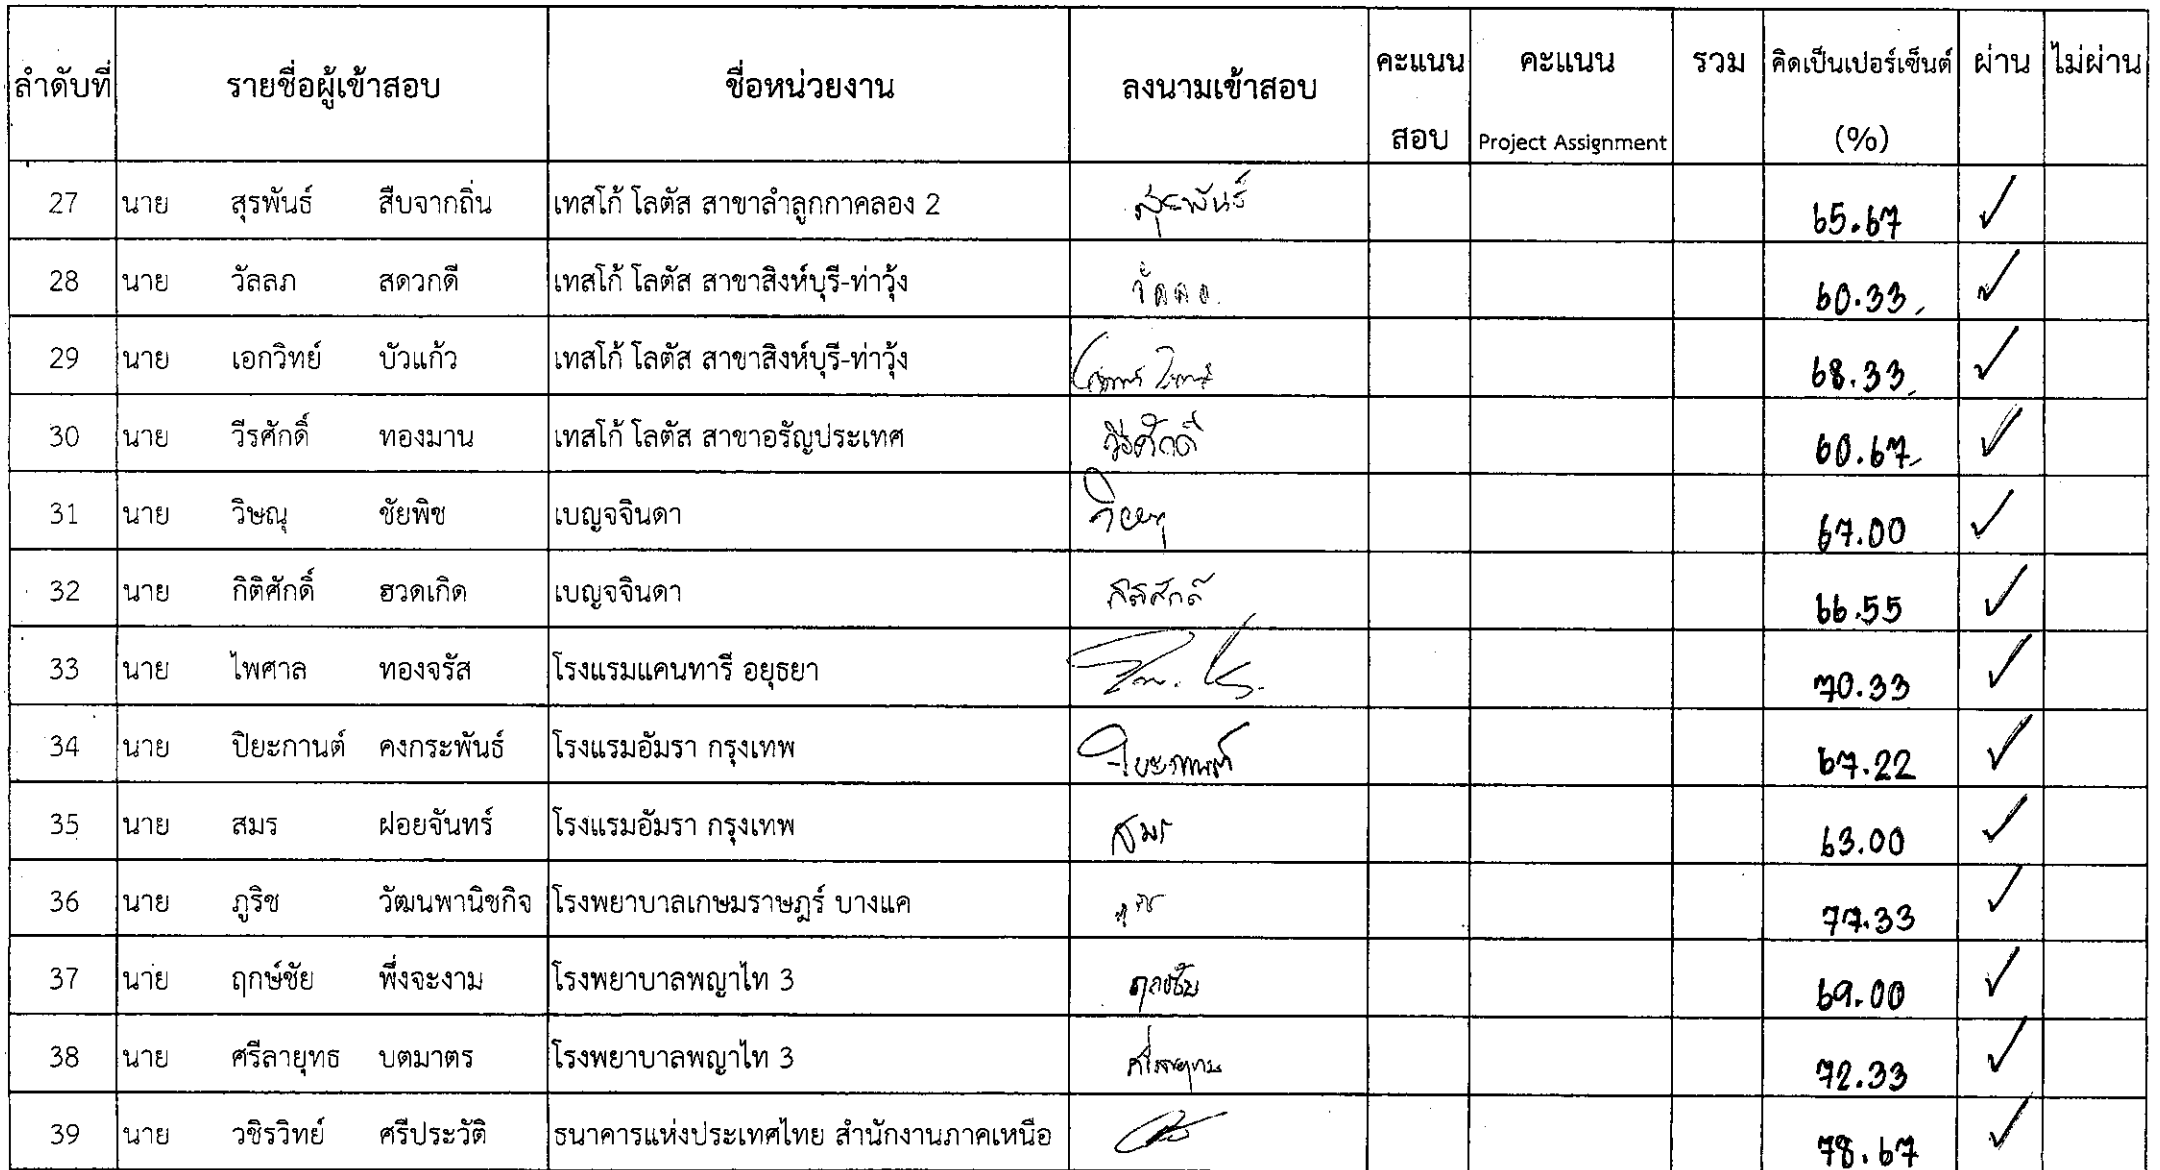 ลำดับที่ รายชื่อผู้เข้าสอบ ชื่อหน่วยงาน ลงนามเข้าสอบ คะแนน สอบ คะแนน Project Assignment รวม คิดเป็นเปอร์เซ็นต์ (%) ผ่าน ไม่ผ่าน
27 นาย สุรพันธ์ สืบจากถิ่น เทสโก้ โลตัส สาขาลำลูกกาคลอง 2 สุรพันธ์ 65.67 ✓
28 นาย วัลลภ สดวกดี เทสโก้ โลตัส สาขาสิงห์บุรี-ท่าวุ้ง วัลลภ 60.33 ✓
29 นาย เอกวิทย์ บัวแก้ว เทสโก้ โลตัส สาขาสิงห์บุรี-ท่าวุ้ง 68.33 ✓
30 นาย วีรศักดิ์ ทองมาน เทสโก้ โลตัส สาขาอรัญประเทศ วีรศักดิ์ 60.67 ✓
31 นาย วิษณุ ชัยพิช เบญจจินดา วิษณุ 67.00 ✓
32 นาย กิติศักดิ์ ฮวดเกิด เบญจจินดา กิติศักดิ์ 66.55 ✓
33 นาย ไพศาล ทองจรัส โรงแรมแคนทารี อยุธยา 70.33 ✓
34 นาย ปิยะกานต์ คงกระพันธ์ โรงแรมอัมรา กรุงเทพ ปิยะกานต์ 67.22 ✓
35 นาย สมร ฝอยจันทร์ โรงแรมอัมรา กรุงเทพ สมร 63.00 ✓
36 นาย ภูริช วัฒนพานิชกิจ โรงพยาบาลเกษมราษฎร์ บางแค 77.33 ✓
37 นาย ฤกษ์ชัย พึ่งจะงาม โรงพยาบาลพญาไท 3 ฤกษ์ชัย 69.00 ✓
38 นาย ศรีลายุทธ บตมาตร โรงพยาบาลพญาไท 3 72.33 ✓
39 นาย วชิรวิทย์ ศรีประวัติ ธนาคารแห่งประเทศไทย สำนักงานภาคเหนือ 78.67 ✓